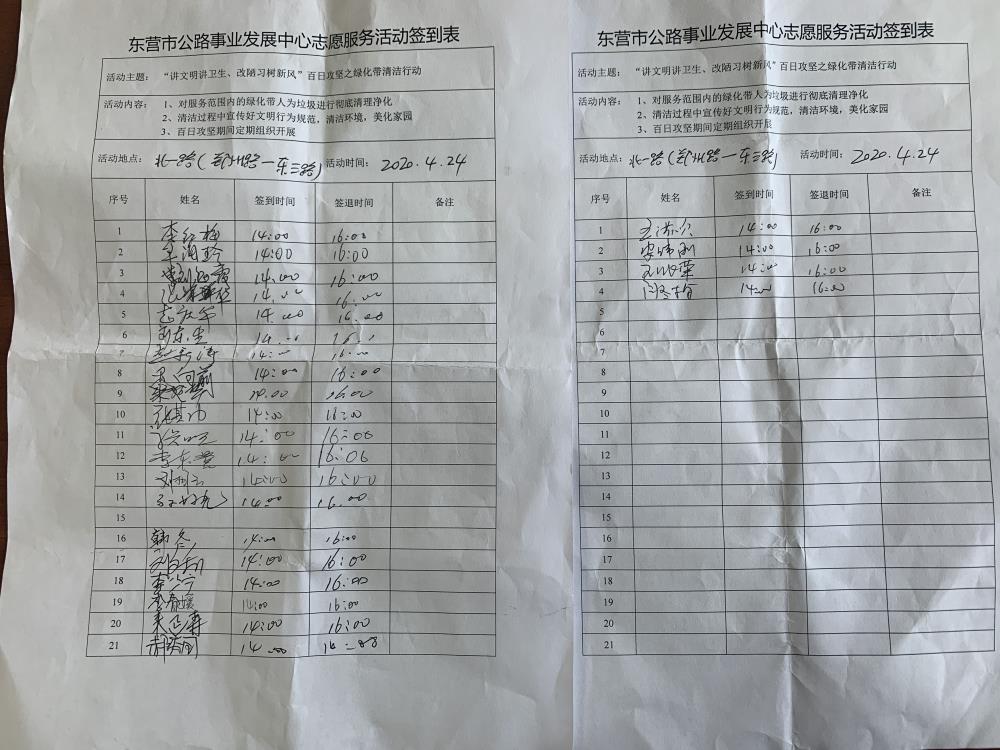 东营市公路事业发展中心志愿服务活动签到表
活动主题： “讲文明讲卫生、改陋习树新风”百日攻坚之绿化带清洁行动
活动内容： 1、对服务范围内的绿化带人为垃圾进行彻底清理净化
2、清洁过程中宣传好文明行为规范，清洁环境，美化家园
3、百日攻坚期间定期组织开展
活动地点： 北一路(郑州路一东三路) 活动时间： 2020.4.24
序号 姓名 签到时间 签退时间 备注
1 李红梅 14:00 16:00
2 14:00 16:00
3 14:00 16:00
4 14:00 16:00
5 14:00 16:00
6 14:00 16:00
7 14:00 16:00
8 14:00 16:00
9 14:00 16:00
10 14:00 16:00
11 14:00 16:00
12 李东莹 14:00 16:00
13 14:00 16:00
14 14:00 16:00
15
16 韩冬 14:00 16:00
17 14:00 16:00
18 14:00 16:00
19 李春媛 14:00 16:00
20 14:00 16:00
21 14:00
东营市公路事业发展中心志愿服务活动签到表
活动主题： “讲文明讲卫生、改陋习树新风”百日攻坚之绿化带清洁行动
活动内容： 1、对服务范围内的绿化带人为垃圾进行彻底清理净化
2、清洁过程中宣传好文明行为规范，清洁环境，美化家园
3、百日攻坚期间定期组织开展
活动地点： 北一路(郑州路一东三路) 活动时间： 2020.4.24
序号 姓名 签到时间 签退时间 备注
1 14:00 16:00
2 14:00 16:00
3 14:00 16:00
4 14:00 16:00
5
6
7
8
9
10
11
12
13
14
15
16
17
18
19
20
21